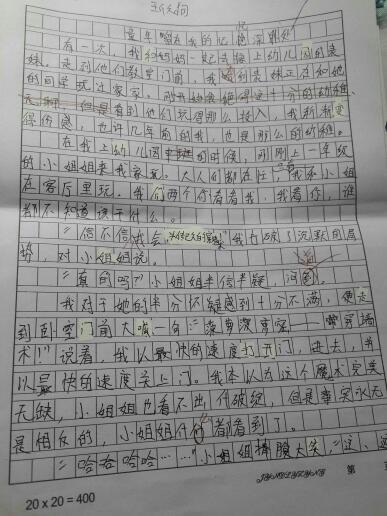 童年留在我的记忆深处
有一天，我和妈妈一起去接上幼儿园的表
妹。走到他们教室门前，我看到表妹正在和她
的同学玩过家家。刚开始我觉得这十分的幼稚、
无聊，但是看到他们玩得那么投入，我渐渐变
得伤感，也许几年前的我，也是那么的幼稚。
在我上幼儿园中班的时候，刚刚上一年级
的小姐姐来我家玩。大人们都在忙，我和小姐
在客厅里玩。我们两个你看看我，我看你，谁
都不知道该干什么。
“信不信我会" 我打破了沉默的局
势，对小姐姐说。
“真的吗?”小姐姐半信半疑，问
我对于她的半分怀疑感到十分不满，便走
到卧室门前大喊一句：“ 穿墙
术!”说着，我以最快的速度打开门，进去，再
以最快的速度关上门。我本以为这个魔术完美
无缺，小姐姐也看不出什破绽，但是事实永远
是相反的，小姐姐什么都看到了。
“哈哈哈哈……”小姐姐捧腹大笑，“这、这
第
20×20=400